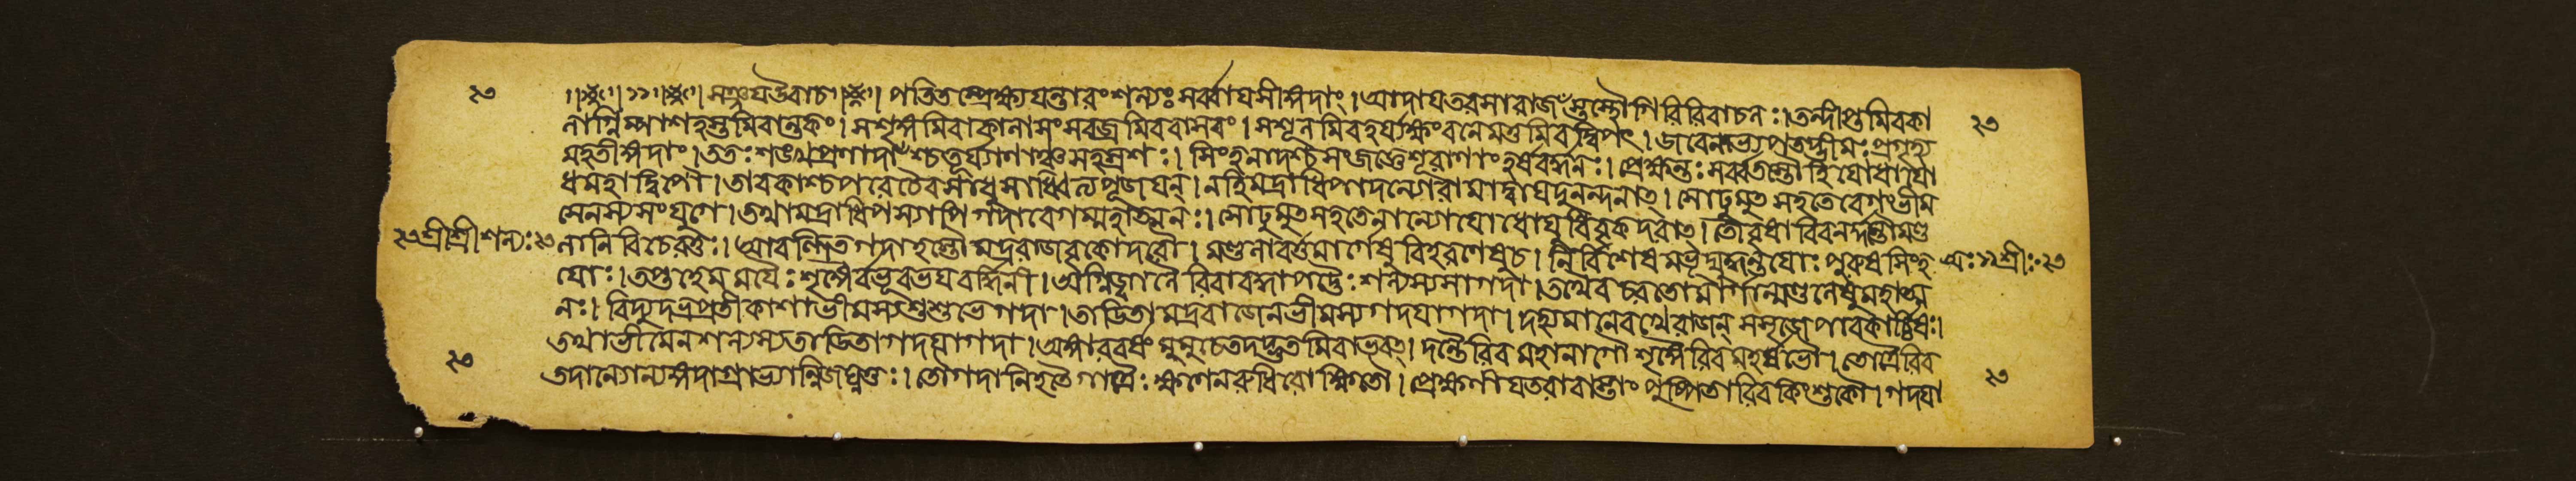 ২৩ ।।সঞ্জয়উবাচ। পতিতম্প্রেক্ষ্যযন্তারং শল্যঃ সর্ব্বায়সীঙ্গদাং। আদায়তরসারাজঁস্তস্থৌগিরিরিবাচলঃ। তন্দীপ্তমিবকা
লাগ্নিম্পাশহস্তমিবান্তকং। সশৃঙ্গমিবকৈলাসংসবজ্রমিববাসবং। সশূলমিবহর্য্যক্ষংবনেমত্তমিবদ্বিপং। জবেনাভ্যপতদ্ভীমঃপ্রগৃহ্য ২৩
মহতীঙ্গদাং। ততঃশঙ্খপ্রণাদাঁশ্চতূর্য্যাণাঞ্চসহস্রশঃ। সিংহনাদশ্চসংজজ্ঞেশূরাণাংহর্ষবর্দ্ধনঃ। প্রেক্ষন্তঃসর্ব্বতস্তৌহিযোধাযো
ধমহাদ্বিপৌ। তাবকাশ্চপরেচৈবসাধুসাধ্বিত্যপূজয়ন্। নহিমদ্রাধিপাদন্যোরামাদ্বাযদুনন্দনাৎ। সোঢ়ুমুৎসহতেবেগংভীম
সেনস্যসংযুগে। তথামদ্রাধিপস্যাপিগদাবেগম্মহাত্মনঃ। সোঢ়ুমুৎসহতেনান্যোযোধোযুধিবৃকোদরাৎ। তৌবৃষাবিবনর্দ্দন্তৌমণ্ড
২৩শ্রীশ্রীশল্যঃ২৩ লানিবিচেরতুঃ। আবল্গিতগদাহস্তৌমদ্ররাজবৃকোদরৌ। মণ্ডলাবর্ত্তমার্গেষুবিহরণেষুচ। নির্বিশেষমভূদ্যুদ্ধন্তয়োঃপুরুষসিংহ
য়োঃ। তপ্তহেমময়ৈঃশৃঙ্গৈর্বভূবভয়বর্দ্ধিনী। অগ্নিজ্বালৈরিবাবদ্ধাপট্টৈঃশল্যস্যসাগদা। তথৈবচরতোমার্গান্মণ্ডলেষুমহাত্ম
নঃ। বিদ্যুদভ্রপ্রতীকাশাভীমস্যশুশুভেগদা। তাডিতামদ্ররাজেনভীমস্যগদয়াগদা। দহ্যমানেবখেরাজন্সসৃজেপাবকার্চ্চিষঃ।
তথাভীমেনশল্যস্যতাডিতাগদয়াগদা। অঙ্গারবর্ষংমুমুচেতদদ্ভুতমিবাভবৎ। দন্তৈরিবমহানাগৌশৃঙ্গৈরিবমহর্ষভৌ। তোত্রৈরিব
২৩ তদান্যোন্যঙ্গদাগ্রাভ্যান্নিজঘ্নতুঃ। তৌগদানিহতৈর্গাত্রৈঃক্ষণেনরুধিরোক্ষিতৌ। প্রেক্ষণীয়তরাবাস্তাংপুষ্পিতাবিবকিংশুকৌ। গদয়া ২৩